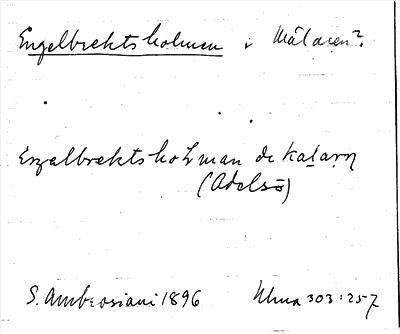 Engelbrektsholmen i Mälaren?
Eŋəlbrektshoḷman de kaḷaṛn
(Adelsö)
S. Ambrosiani 1896 Ulma 303:257